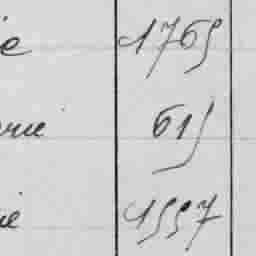 e 1765
rie 615
ie 1557